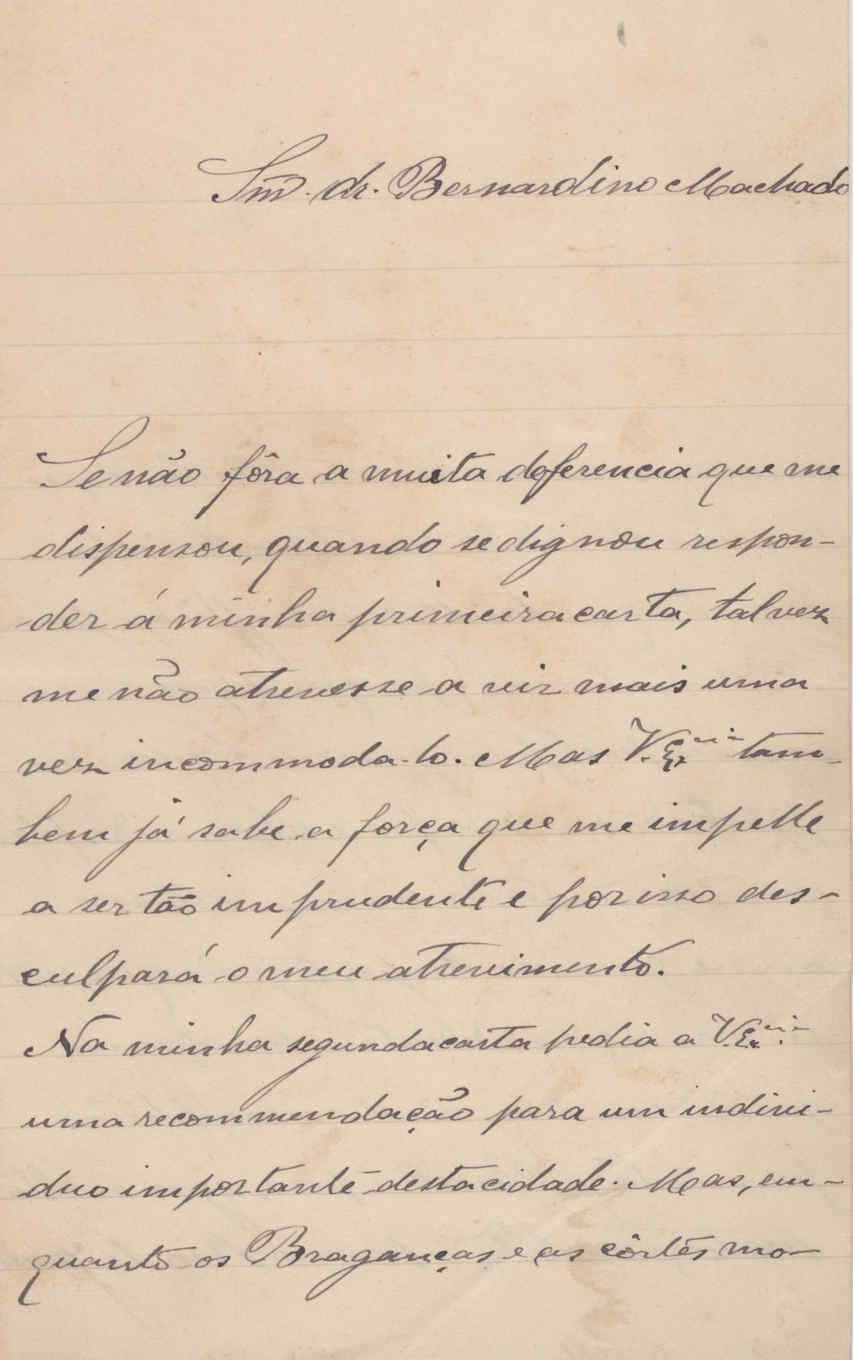 Snr. dr. Bernardino Machado
Se não fôra a muita deferencia que me
dispensou, quando se dignou respon-
der á minha primeira carta, talvez
me não atrevesse a vir mais uma
vez incommoda-lo. Mas V. Ex.cia tam-
bem já sabe a força que me impelle
a ser tão imprudente e por isso des-
culpará o meu atrevimento.
Na minha segunda carta pedia a V. Ex.cia
uma recommendação para um indivi-
duo importante desta cidade. Mas, em-
quanto os Braganças e as côrtes mo-